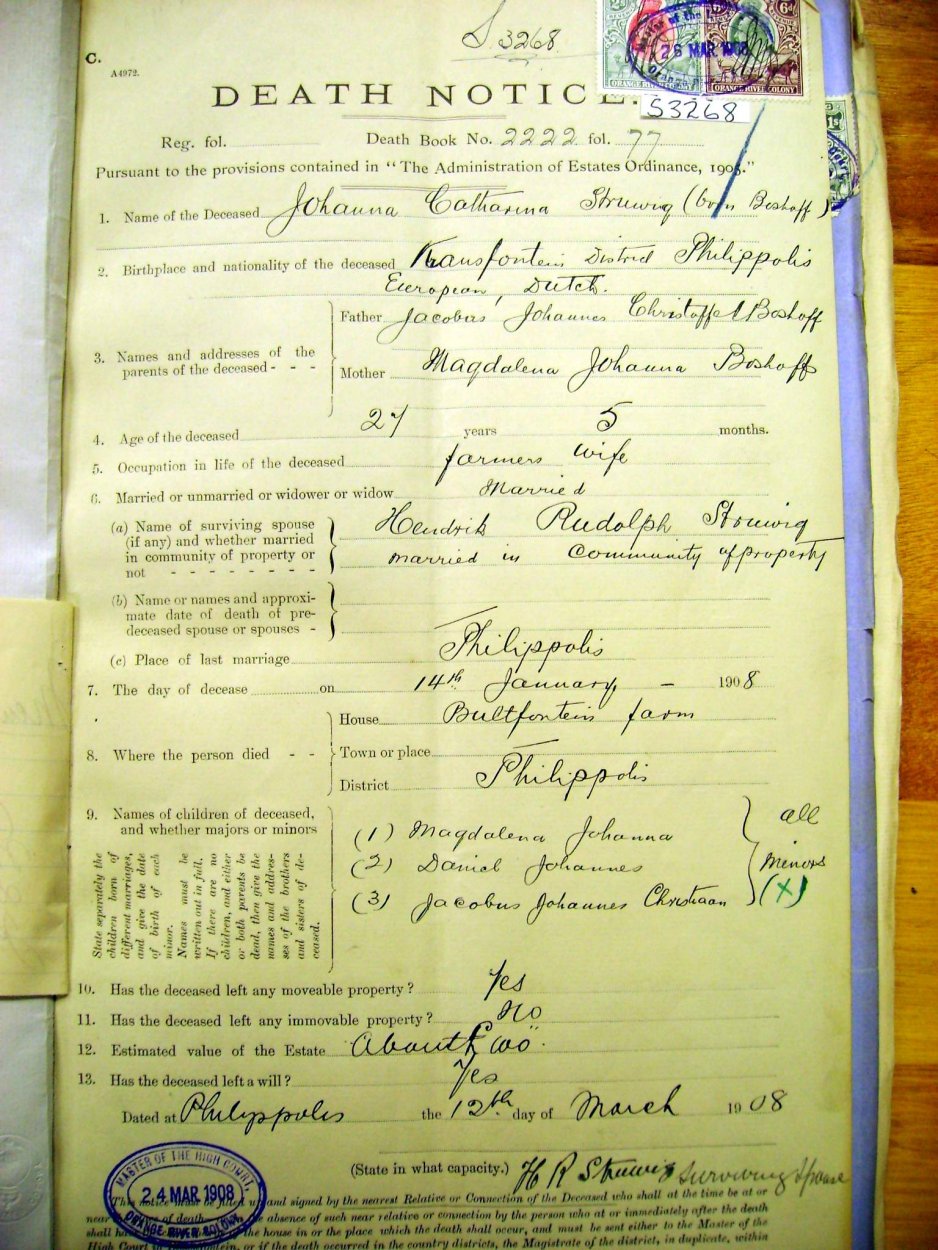 S 3268
C.
A4972.
DEATH NOTICE.
26 MAR 1908
ORANGE RIVER COLONY
6d
ORANGE RIVER COLONY
S3268
1s
Reg. fol. Death Book No. 2222 fol. 77
Pursuant to the provisions contained in "The Administration of Estates Ordinance, 1905."
1. Name of the Deceased Johanna Catharina Struwig (born Boshoff)
2. Birthplace and nationality of the deceased Kransfontein District Philippolis
European, Dutch.
3. Names and addresses of the parents of the deceased - - -
Father Jacobus Johannes Christoffel Boshoff
Mother Magdalena Johanna Boshoff
4. Age of the deceased 27 years 5 months.
5. Occupation in life of the deceased farmers wife
6. Married or unmarried or widower or widow Married
(a) Name of surviving spouse Hendrik Rudolph Struwig
(if any) and whether married
in community of property or married in Community of property
not - - - - - - -
(b) Name or names and approxi-
mate date of death of pre-
deceased spouse or spouses -
(c) Place of last marriage Philippolis
7. The day of decease on 14th January - 1908
8. Where the person died - -
House Bultfontein farm
Town or place
District Philippolis
9. Names of children of deceased,
and whether majors or minors
State separately the
children born of
different marriages,
and give the date
of birth of each
minor.
Names must be
written out in full.
If there are no
children, and either
or both parents be
dead, then give the
names and addres-
ses of the brothers
and sisters of de-
ceased.
(1) Magdalena Johanna
(2) Daniel Johannes
(3) Jacobus Johannes Christiaan
all
minors
(X)
10. Has the deceased left any moveable property? Yes
11. Has the deceased left any immovable property? No
12. Estimated value of the Estate About £
13. Has the deceased left a will? Yes
Dated at Philippolis the 12th day of March 1908
(State in what capacity.) H R Struwig surviving spouse
MASTER OF THE HIGH COURT
24 MAR 1908
ORANGE RIVER COLONY
This notice must be filled up and signed by the nearest Relative or Connection of the Deceased who shall at the time be at or
near place of death the absence of such near relative or connection by the person who at or immediately after the death
shall have the house in or the place which the death shall occur, and must be sent either to the Master of the
High Court or if the death occurred in the country districts, the Magistrate of the district, in duplicate, within